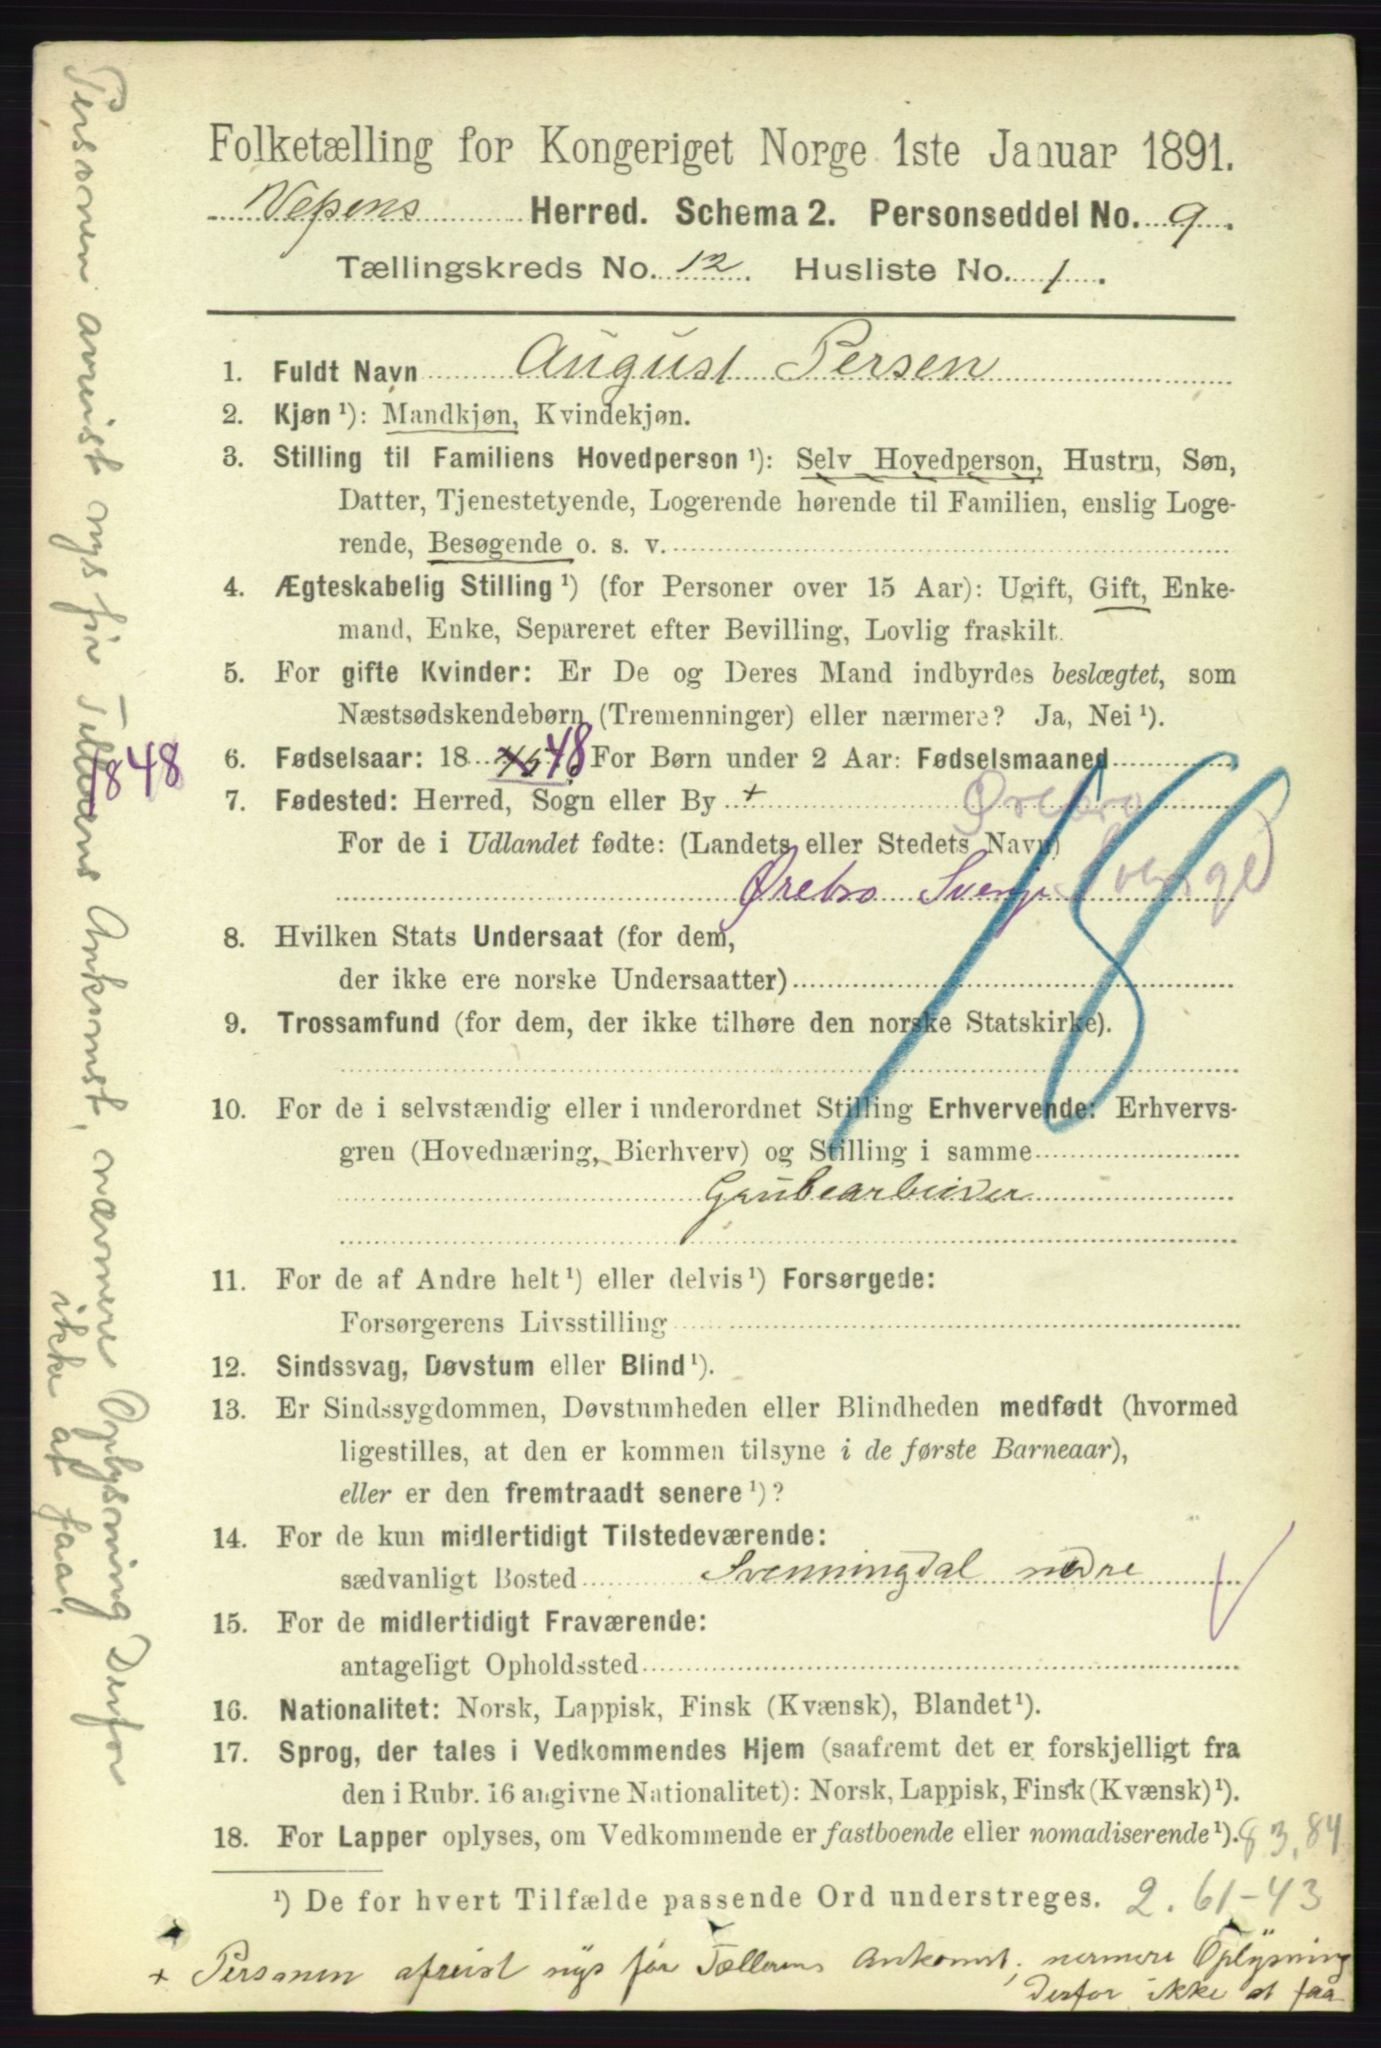 Folketælling for Kongeriget Norge 1ste Januar 1891.
Vefsens Herred. Schema 2. Personseddel No. 9.
Tællingskreds No. 12. Husliste No. 1.
1. Fuldt Navn August Persen
2. Kjøn ¹): Mandkjøn, Kvindekjøn.
3. Stilling til Familiens Hovedperson ¹): Selv Hovedperson, Hustru, Søn,
Datter, Tjenestetyende, Logerende hørende til Familien, enslig Loge-
rende, Besøgende o. s. v.
4. Ægteskabelig Stilling ¹) (for Personer over 15 Aar): Ugift, Gift, Enke-
mand, Enke, Separeret efter Bevilling, Lovlig fraskilt.
5. For gifte Kvinder: Er De og Deres Mand indbyrdes beslægtet, som
Næstsødskendebørn (Tremenninger) eller nærmere? Ja, Nei ¹).
6. Fødselsaar: 18 48 For Børn under 2 Aar: Fødselsmaaned
1848
7. Fødested: Herred, Sogn eller By + Ørebro
For de i Udlandet fødte: (Landets eller Stedets Navn)
Ørebro Sverige Sverige
8. Hvilken Stats Undersaat (for dem,
der ikke ere norske Undersaatter)
9. Trossamfund (for dem, der ikke tilhøre den norske Statskirke).
10. For de i selvstændig eller i underordnet Stilling Erhvervende: Erhvervs-
gren (Hovednæring, Bierhverv) og Stilling i samme
Grubearbeider
11. For de af Andre helt ¹) eller delvis ¹) Forsørgede:
Forsørgerens Livsstilling
12. Sindssvag, Døvstum eller Blind ¹).
13. Er Sindssygdommen, Døvstumheden eller Blindheden medfødt (hvormed
ligestilles, at den er kommen tilsyne i de første Barneaar),
eller er den fremtraadt senere ¹)?
14. For de kun midlertidigt Tilstedeværende:
sædvanligt Bosted Svenningdal nedre
15. For de midlertidigt Fraværende:
antageligt Opholdssted
16. Nationalitet: Norsk, Lappisk, Finsk (Kvænsk), Blandet ¹).
17. Sprog, der tales i Vedkommendes Hjem (saafremt det er forskjelligt fra
den i Rubr. 16 angivne Nationalitet): Norsk, Lappisk, Finsk (Kvænsk) ¹).
18. For Lapper oplyses, om Vedkommende er fastboende eller nomadiserende ¹). 83,84
¹) De for hvert Tilfælde passende Ord understreges. 2. 61-43
+ Personen afreist nys før Tællerens Ankomst, nermere Oplysning
derfor ikke at faa
Personen avreist nys før Tellerens Ankomst, nærmere Oplysning Derfor
ikke at faa.